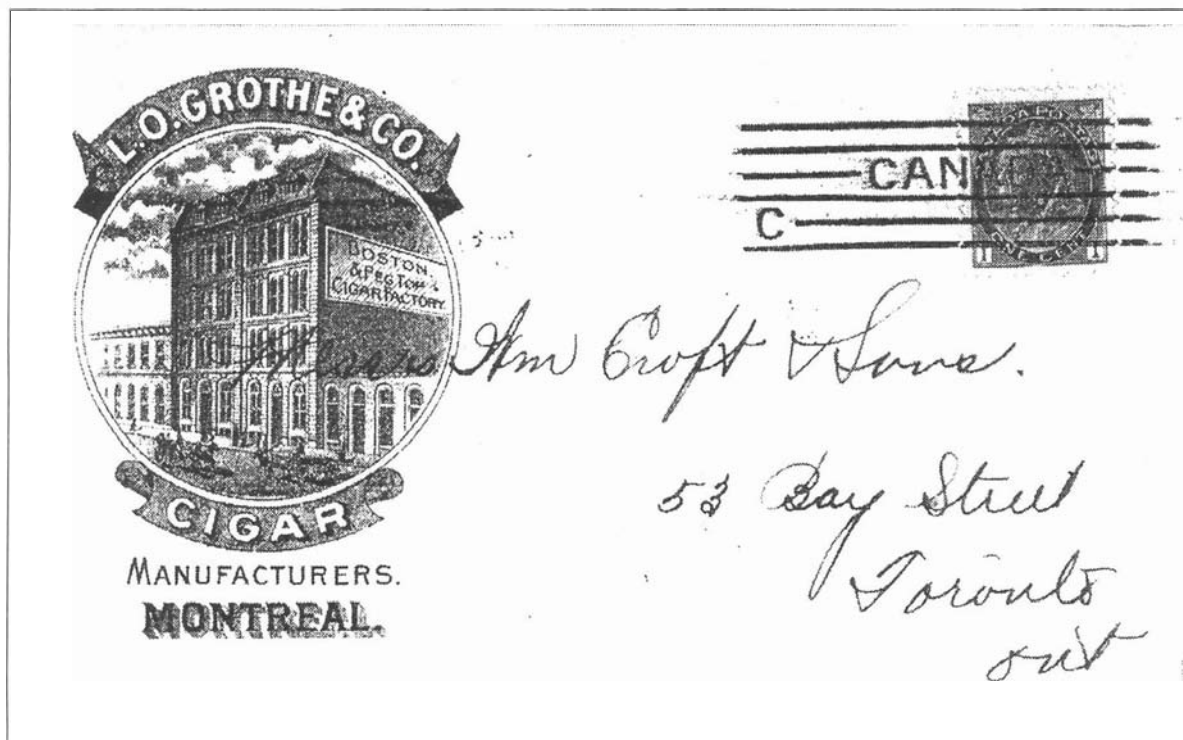 L. O. GROTHE & CO.
BOSTON
& PEG TOP
CIGAR FACTORY
CIGAR
MANUFACTURERS.
MONTREAL.
CANADA
C
CANADA POSTAGE
ONE CENT
1 1
Messrs Wm Croft & Sons.
53 Bay Street
Toronto
Ont